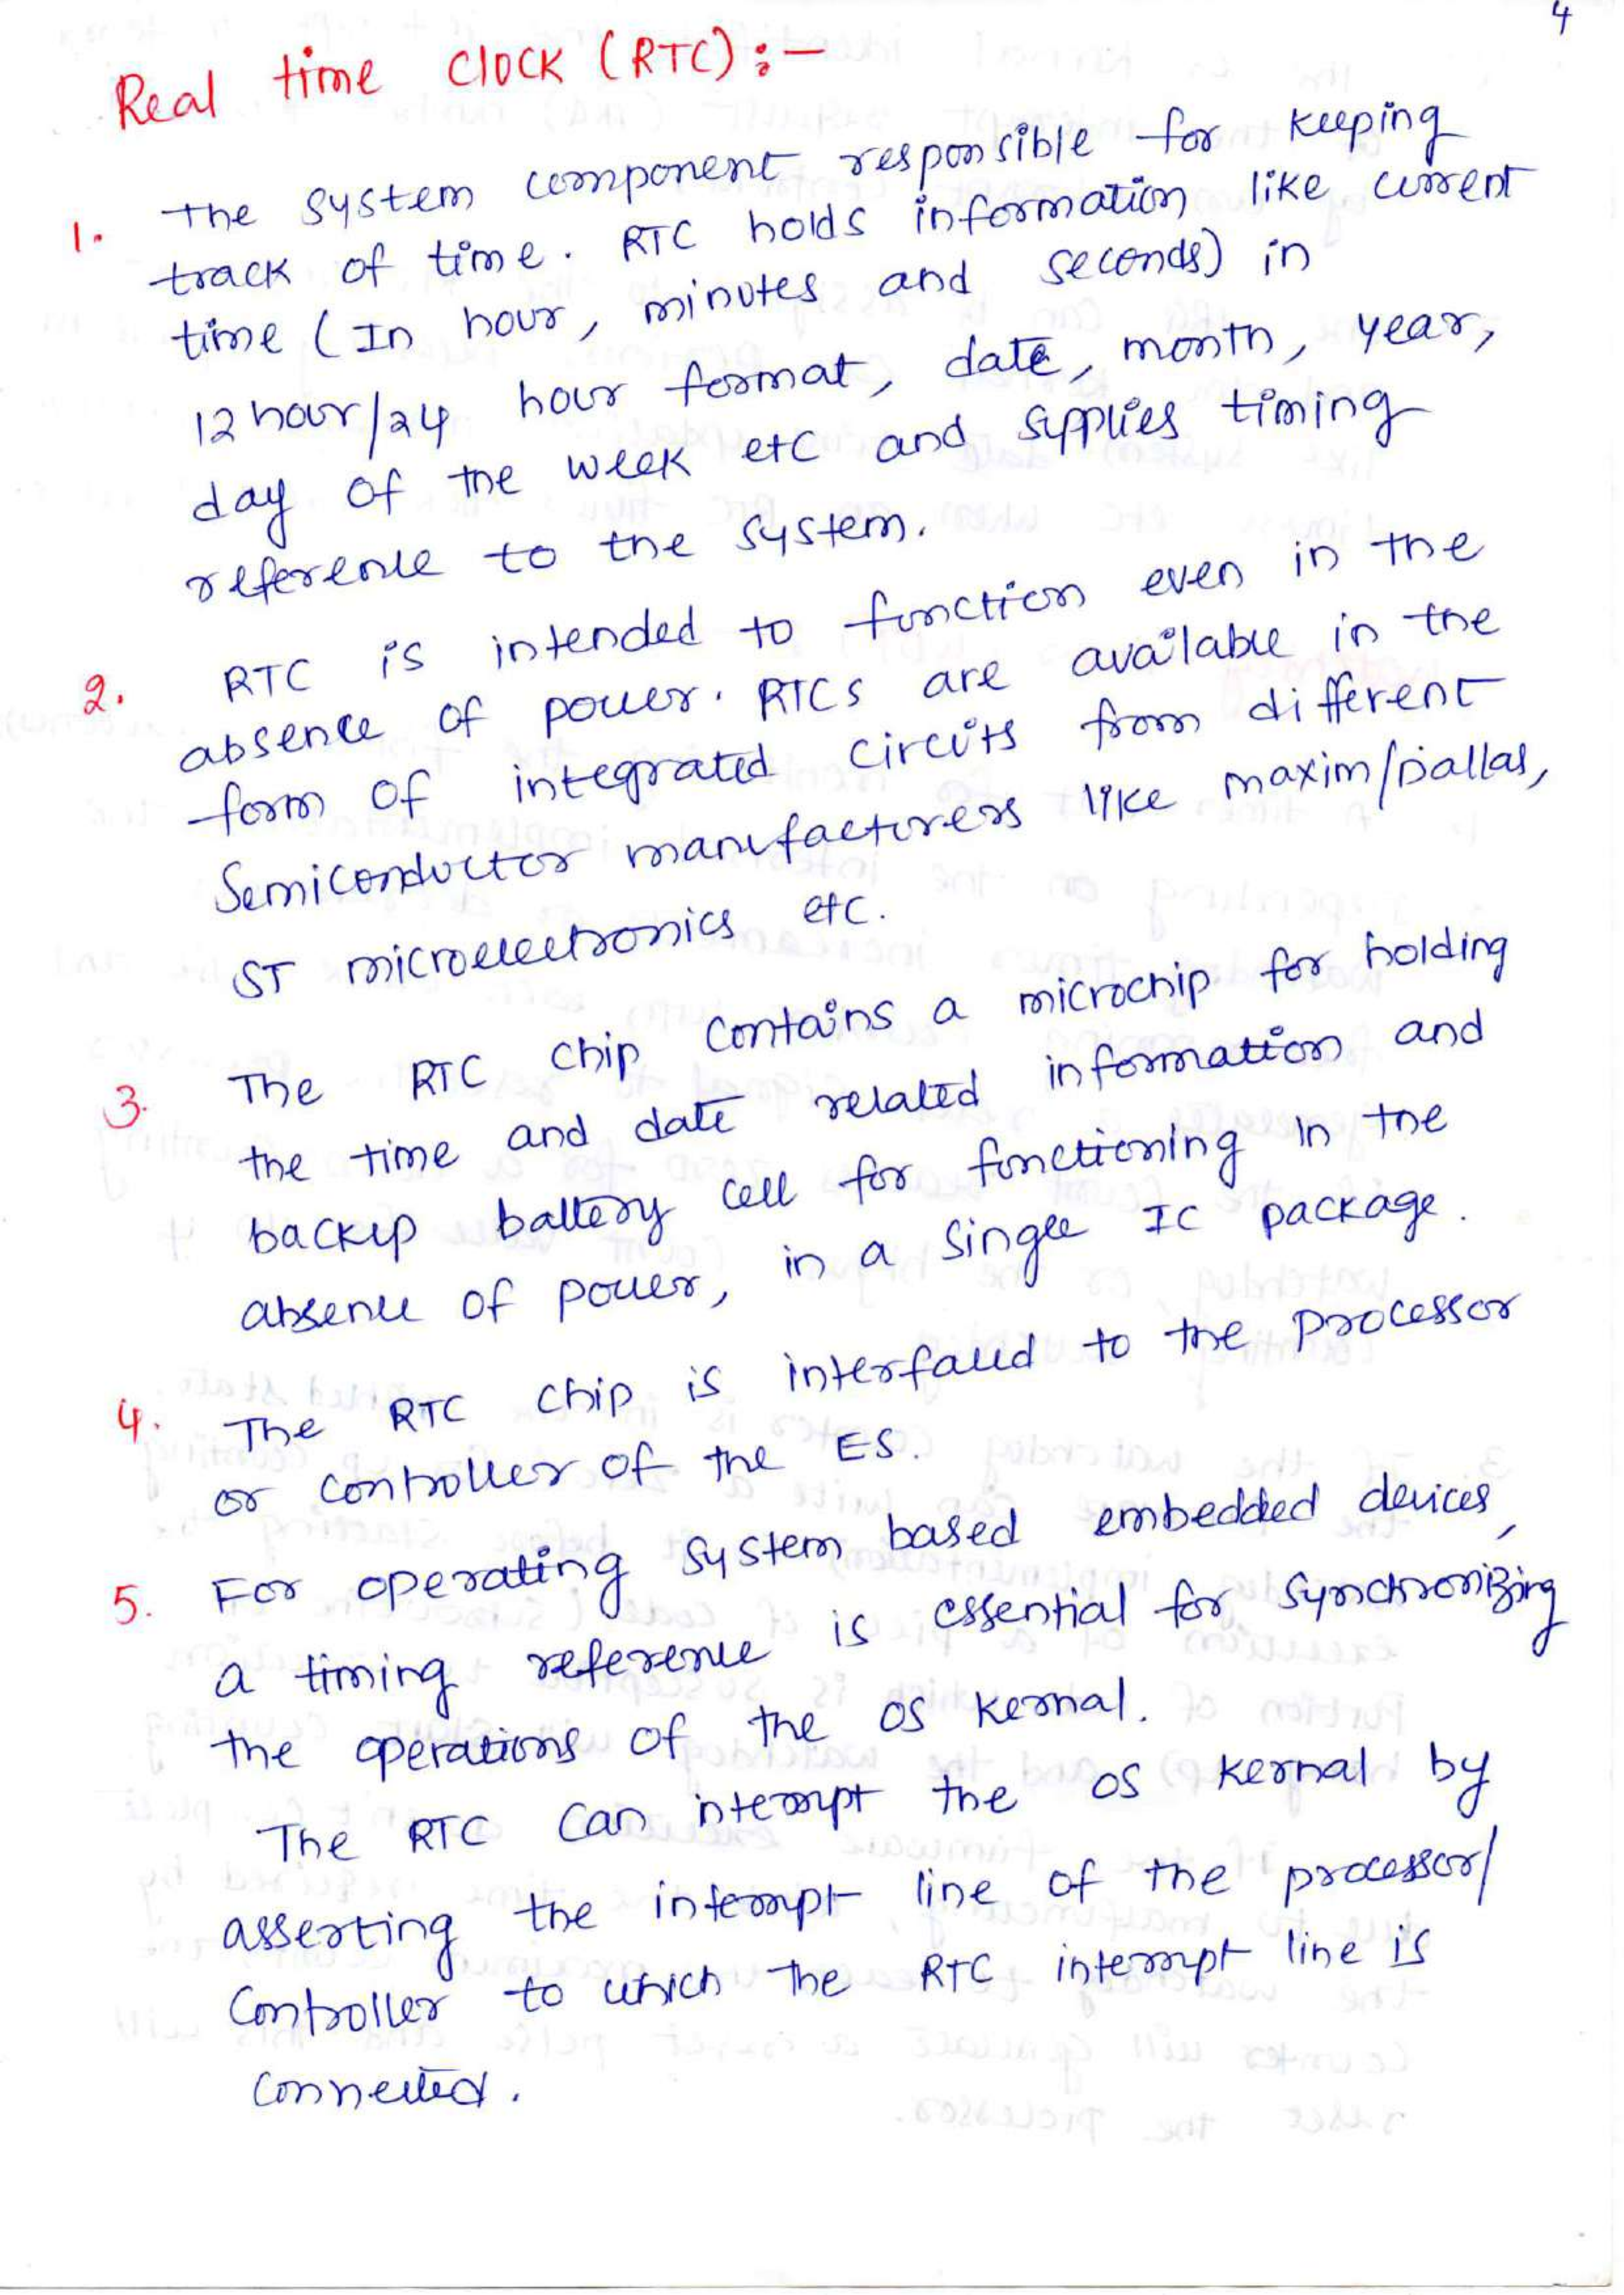 4
Real time Clock (RTC):-
1. The system component responsible for keeping
track of time. RTC holds information like current
time (In hour, minutes and seconds) in
12 hour/24 hour format, date, month, year,
day of the week etc and supplies timing
reference to the system.
2. RTC is intended to function even in the
absence of power. RTCs are available in the
form of integrated circuits from different
Semiconductor manufacturers like maxim/Dallas,
ST microelectronics etc.
3. The RTC chip contains a microchip for holding
the time and date related information and
backup battery cell for functioning in the
absence of power, in a single IC package.
4. The RTC chip is interfaced to the processor
or controller of the ES.
5. For operating system based embedded devices,
a timing reference is essential for synchronizing
the operations of the OS kernal.
The RTC can interrupt the OS kernal by
asserting the interrupt line of the processor/
Controller to which the RTC interrupt line is
connected.